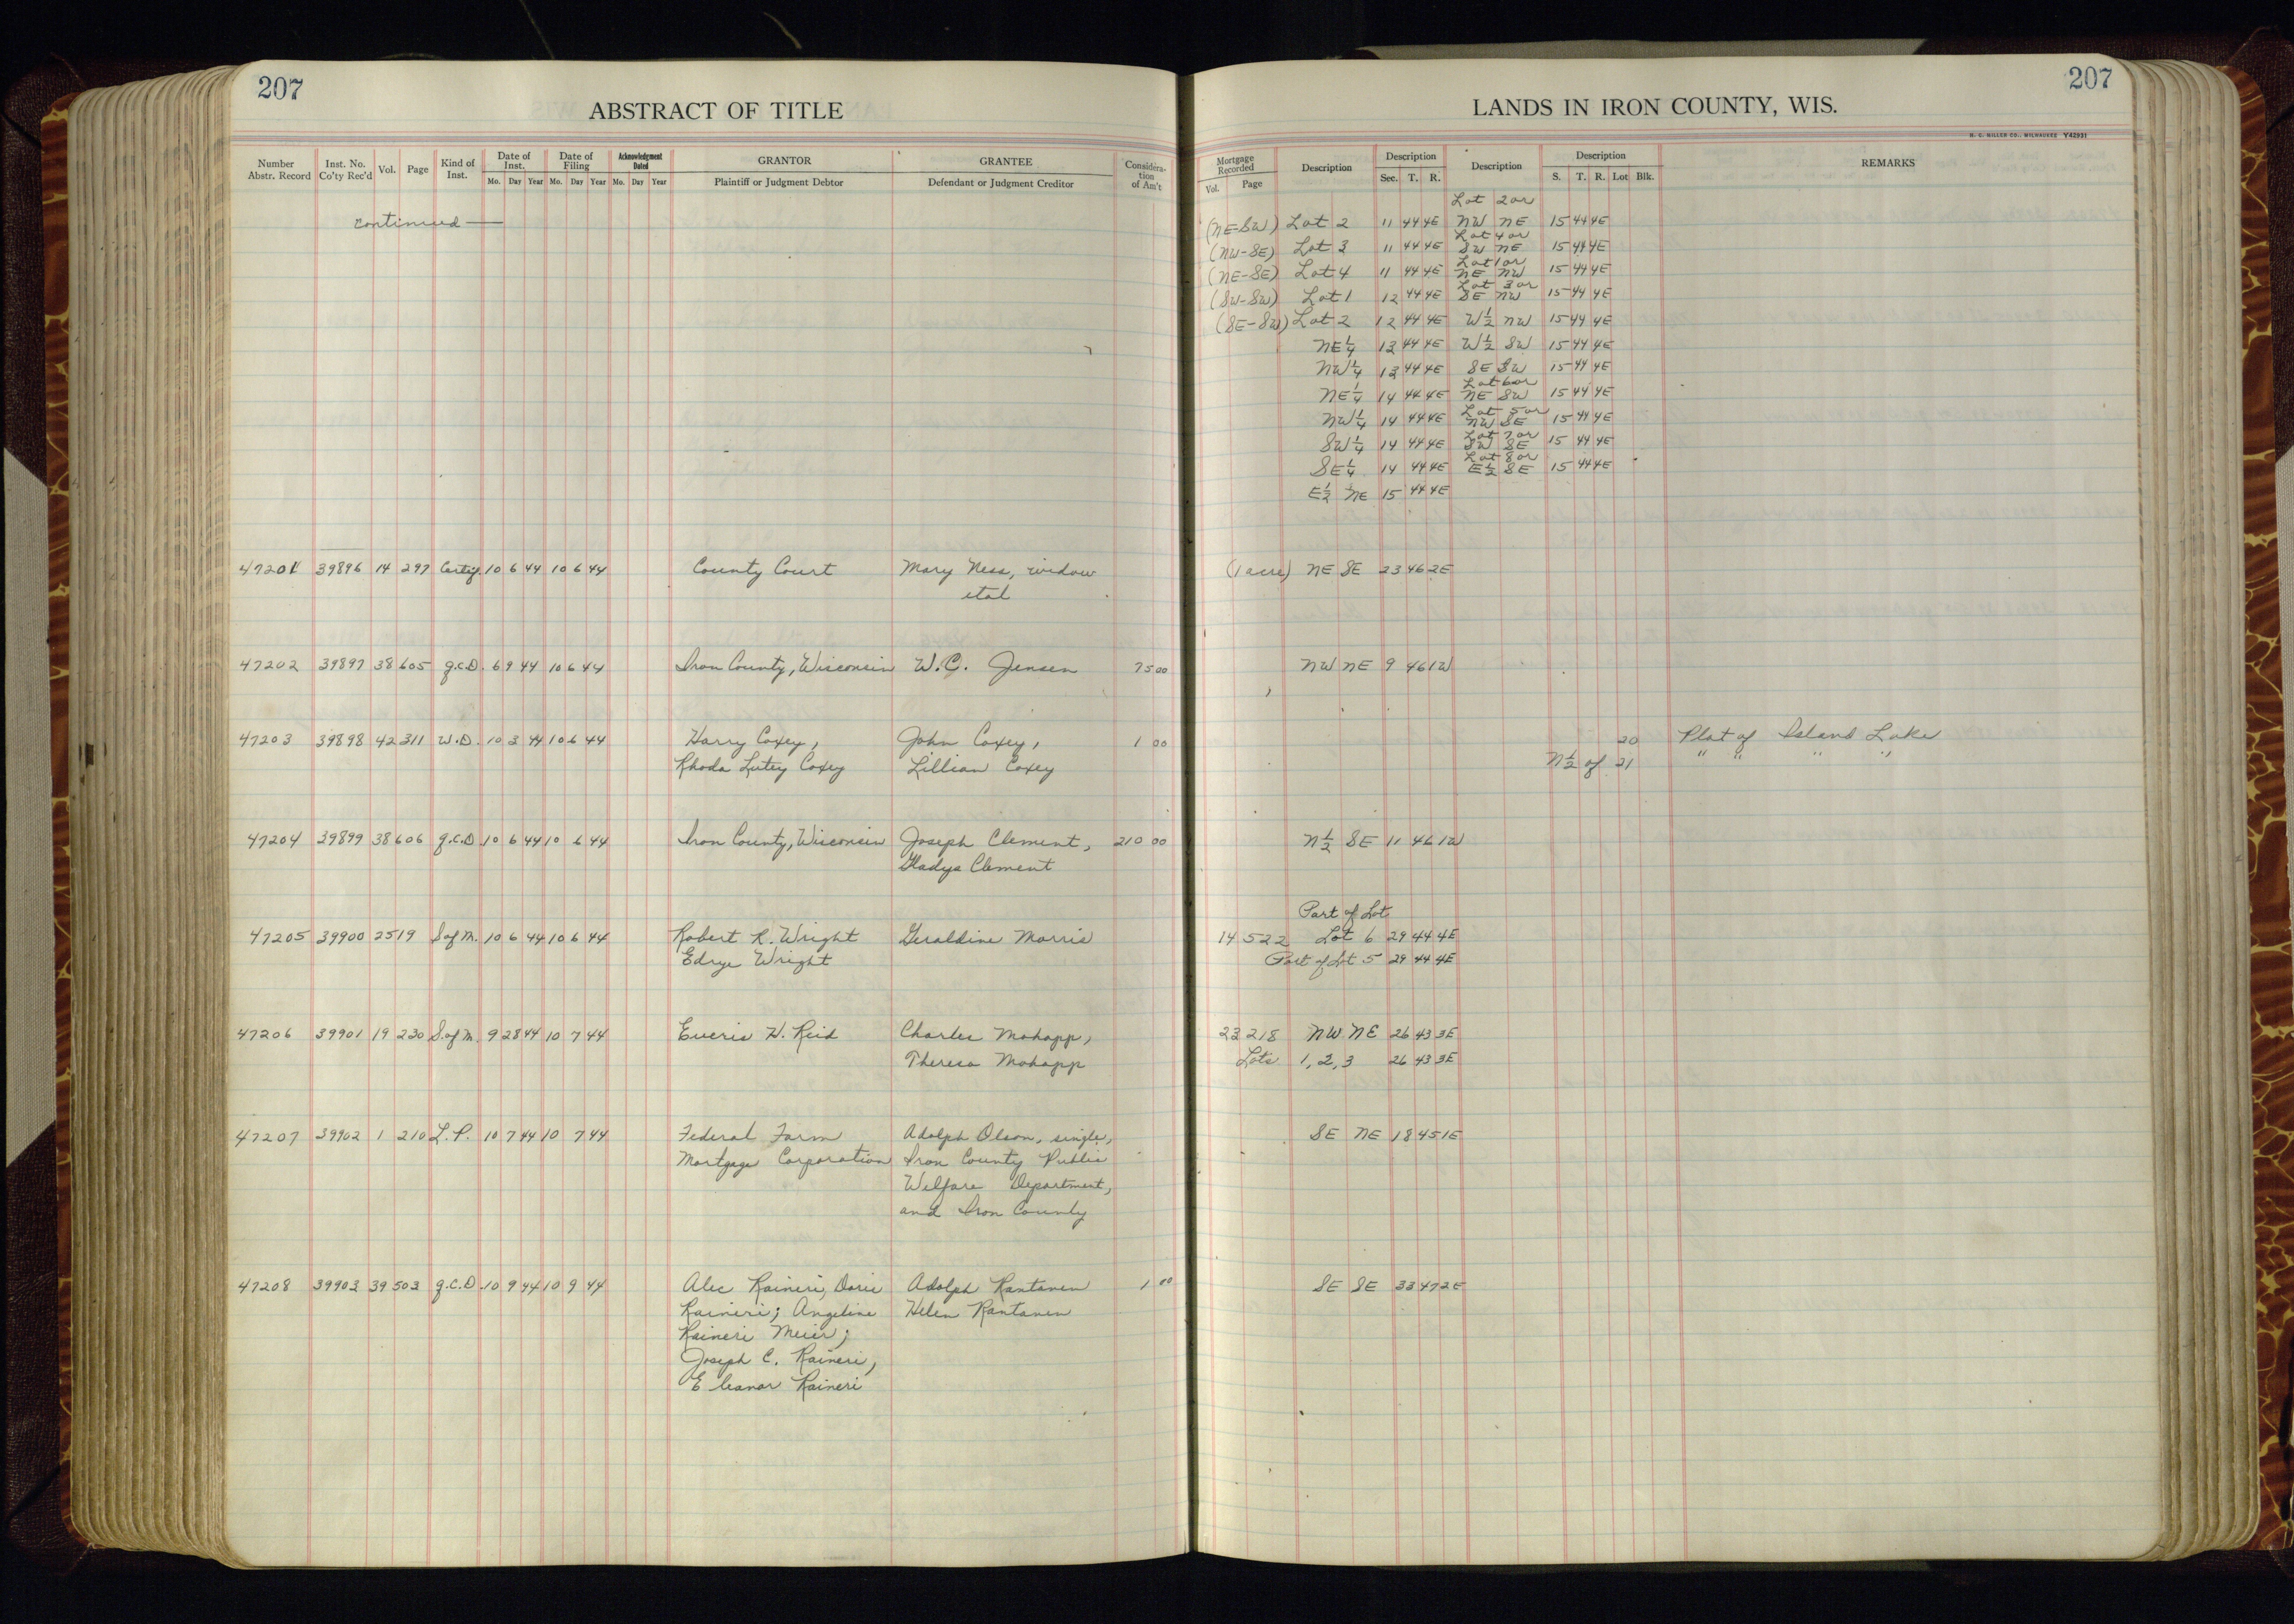 207
ABSTRACT OF TITLE
Number Abstr. Record | Inst. No. Co'ty Rec'd | Vol. | Page | Kind of Inst. | Date of Inst. Mo. Day Year | Date of Filing Mo. Day Year | Acknowledgment Dated Mo. Day Year | GRANTOR Plaintiff or Judgment Debtor | GRANTEE Defendant or Judgment Creditor | Consideration of Am't
continued —
47201 39896 14 297 Certif. 10 6 44 10 6 44 County Court Mary Ness, widow
etal
47202 39897 38 605 q.C.D. 6 9 44 10 6 44 Iron County, Wisconsin W.C. Jensen 75 00
47203 39898 42 311 W.D. 10 3 44 10 6 44 Harry Coxey, John Coxey, 1 00
Rhoda Lutey Coxey Lillian Coxey
47204 39899 38 606 q.C.D. 10 6 44 10 6 44 Iron County, Wisconsin Joseph Clement, 210 00
Gladys Clement
47205 39900 25 19 S.of M. 10 6 44 10 6 44 Robert R. Wright Geraldine Morris
Edrye Wright
47206 39901 19 230 S.of M. 9 28 44 10 7 44 Everis H. Reid Charles Mohapp,
Theresa Mohapp
47207 39902 1 210 L.P. 10 7 44 10 7 44 Federal Farm Adolph Olson, single,
Mortgage Corporation Iron County Public
Welfare Department,
and Iron County
47208 39903 39 503 q.C.D. 10 9 44 10 9 44 Alec Raineri, Doris Adolph Rantanen 1 00
Raineri; Angeline Helen Rantanen
Raineri Meier;
Joseph C. Raineri,
Eleanor Raineri
207
LANDS IN IRON COUNTY, WIS.
H. C. MILLER CO., MILWAUKEE Y42931
Mortgage Recorded Vol. Page | Description | Description Sec. T. R. | Description | Description S. T. R. Lot Blk. | REMARKS
Lot 2 or
(NE-SW) Lot 2 11 44 4E NW NE 15 44 4E
Lot 4 or
(NW-SE) Lot 3 11 44 4E SW NE 15 44 4E
Lot 1 or
(NE-SE) Lot 4 11 44 4E NE NW 15 44 4E
Lot 3 or
(SW-SW) Lot 1 12 44 4E SE NW 15 44 4E
(SE-SW) Lot 2 12 44 4E W½ NW 15 44 4E
NE¼ 13 44 4E W½ SW 15 44 4E
NW¼ 13 44 4E SE SW 15 44 4E
Lot 6 or
NE¼ 14 44 4E NE SW 15 44 4E
Lot 5 or
NW¼ 14 44 4E NW SE 15 44 4E
Lot 7 or
SW¼ 14 44 4E SW SE 15 44 4E
Lot 8 or
SE¼ 14 44 4E E½ SE 15 44 4E
E½ NE 15 44 4E
(1 acre) NE SE 23 46 2E
NW NE 9 46 1W
20 Plat of Island Lake
N½ of 21 " " " "
N½ SE 11 46 1W
Part of Lot
14 522 Lot 6 29 44 4E
Part of Lot 5 29 44 4E
23 218 NW NE 26 43 3E
Lots 1, 2, 3 26 43 3E
SE NE 18 45 1E
SE SE 33 47 2E